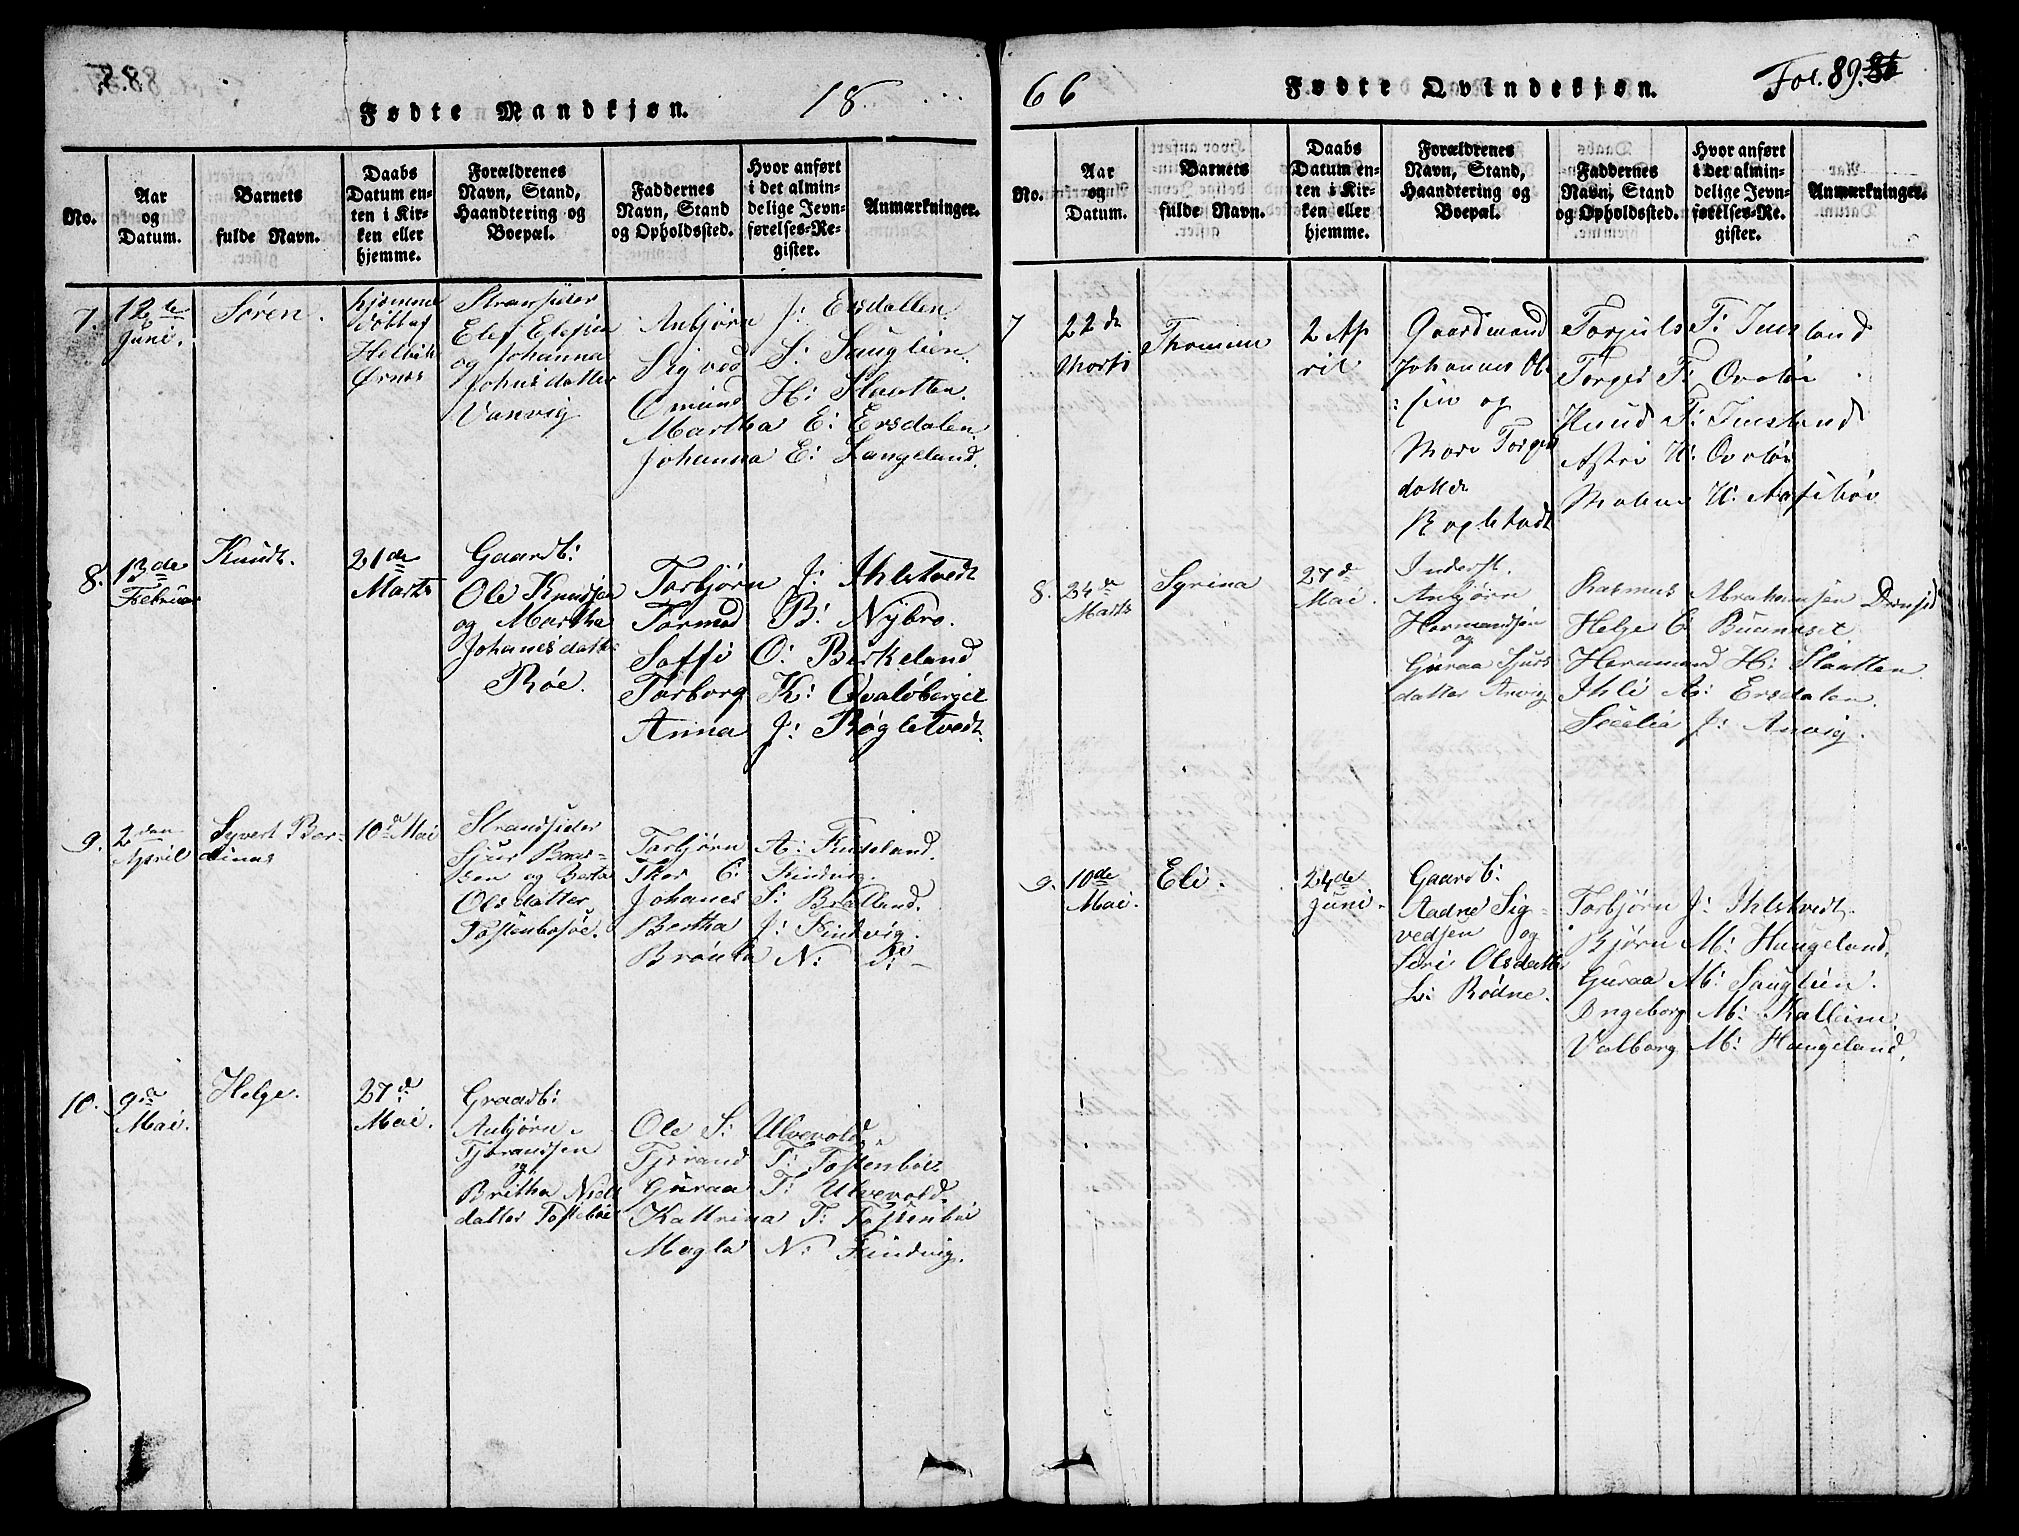 88.
Fødte Mandkjøn.
18
No.
Aar
og
Datum.
Barnets
fulde Navn.
Daabs
Datum en-
ten i Kir-
ken eller
hjemme.
Forældrenes
Navn, Stand,
Haandtering og
Boepæl.
Faddernes
Navn, Stand
og Opholdssted.
Hvor anført
i det almin-
delige Jevn-
førelses-Re-
gister.
Anmærkninger.
7.
12te
Juni.
Søren.
hjemme
døbt af
Helvik
Ørnes
Strandsider
Elef Elefsen
og Johanna
Johnsdatter
Vanvig
Anbjørn J: Ersdallen.
Sigved S: Sauglien.
Omund H: Slaatten.
Martha E: Ersdalen.
Johanna E: Langeland.
8.
13de
Februar
Knudt.
21de
Marts
Gaardb:
Ole Knudsen
og Martha
Johanesdatter
Røe.
Torbjørn J: Ihlstvedt
Tormod B: Nybro.
Soffi O: Birkeland
Torborg K: Qvaløberget
Anna J: Røgletvedt.
9.
2den
April
Syvert Bar-
dinus
10de Mai
Strandsider
Sjur Baar-
sen og Berta
Olsdatter
Tostenbøe.
Torbjørn A: Findeland.
Thor C: Findvig.
Johanes S: Bratland.
Bertha J: Findvig.
Brønla N: do
10.
9de
Mai.
Helge.
27de
Mai.
Graadb:
Anbjørn
Tjorandsen
og
Britha Niels
datter Tostebøe
Ole S: Ulvevold.
Tjorand T: Tostenbøe
Guraa T: Ulvevold.
Kattrina T: Tostenbøe
Magla N: Findvig.
66
Fødte Qvindekjøn.
Fol. 89.
No.
Aar
og
Datum.
Barnets
fulde Navn.
Daabs
Datum en-
ten i Kir-
ken eller
hjemme.
Forældrenes
Navn, Stand,
Haandtering og
Boepæl.
Faddernes
Navn, Stand
og Opholdssted.
Hvor anført
i det almin-
delige Jevn-
førelses-Re-
gister.
Anmærkninger.
7
22de
Marts
2 Ap
ril
Gaardmand
Johannes Ol
:sen og
Mari Torges
datter
Roglstadt
Torjuls T: Imsland
Torger T:
Knud T: Imsland
Malene
8.
24de
Marts
Syrina
27de
Mai.
Inderst.
Anbjørn
Hermandsen
og
Guraa Sjurs
datter Anvig
Rasmus Abrahamsen
Helge C
Hermand H: Slaatten.
Ihli A: Ersdalen.
Secelia J: Anvig.
9.
10de
Mai.
Eli.
24de
Juni.
Gaardb:
Aadne Sig-
vedsen og
Siri Olsdatter
L: Rødne.
Torbjørn J: Ihlstvedt.
Bjørn M: Haugeland.
Guraa M: Sauglien.
Ingeborg M: Kalleim.
Valborg M: Haugeland.